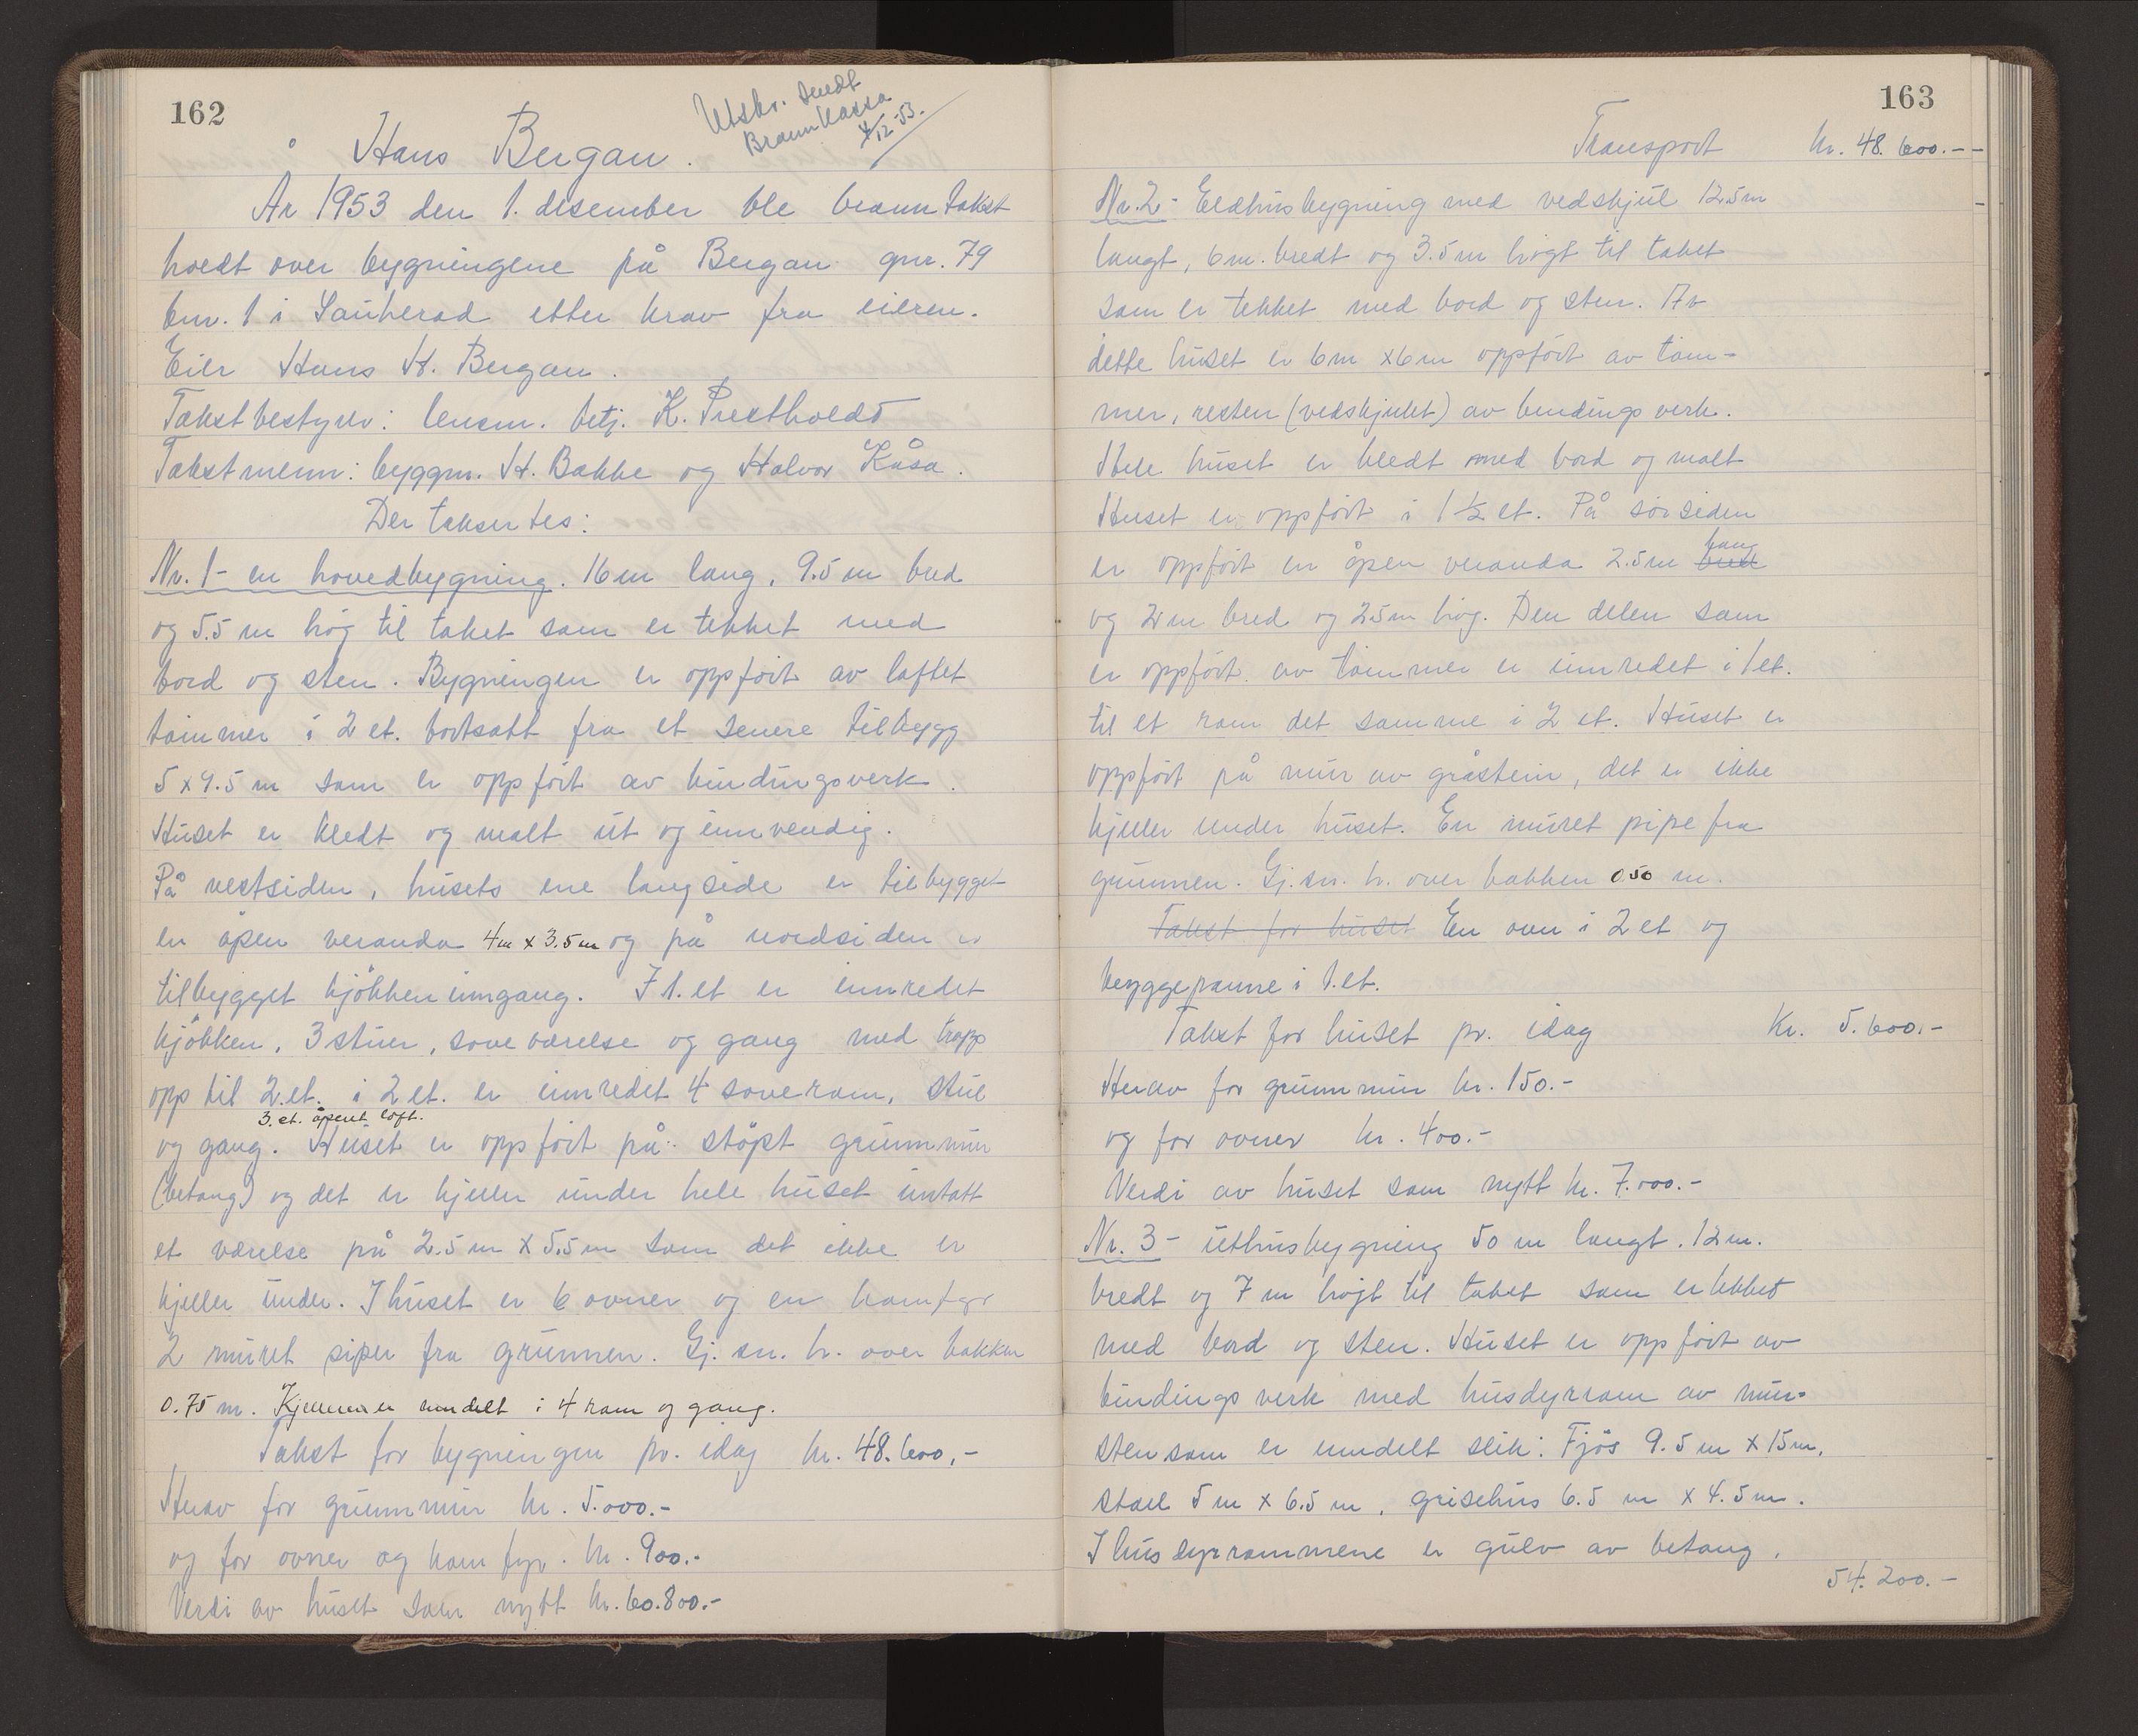 162
Utskr. sendt
Brannkassa
4/12-53.
Hans Bergan.
År 1953 den 1. desember ble branntakst
holdt over bygningene på Bergan gnr. 79
bnr. 1 i Sauherad etter krav fra eieren.
Eier Hans H. Bergan.
Takstbestyrer: lensm. betj. K. Prestholdt
Takstmenn: byggm. H. Bakke og Halvor Kåsa.
Der takseertes:
Nr. 1 - en hovedbygning. 16 m lang, 9.5 m bred
og 5.5 m høg til taket som er tekket med
bord og sten. Bygningen er oppført av laftet
tømmer i 2 et. bortsatt fra et senere tilbygg
5 x 9.5 m som er oppført av bindingsverk.
Huset er kledt og malt ut og innvendig.
På vestsiden, husets ene langside er tilbygget
en åpen veranda 4m x 3.5m og på nordsiden er
tilbygget kjøkkeninngang. I 1. et er innredet
kjøkken, 3 stuer, soveværelse og gang med trapp
opp til 2. et. i 2 et. er innredet 4 soverom, stue
3. et. åpent loft.
og gang. Huset er oppført på støpt grunnmur
(betong) og det er kjeller under hele huset untatt
et værelse på 2.5 m x 5.5 m som det ikke er
kjeller under. I huset er 6 ovner og en komfyr
2 muret piper fra grunnen. Gj. sn. h. over bakken
0.75 m. Kjelleren er inndelt i 4 rom og gang.
Takst for bygningen pr. idag kr. 48.600,-
Herav for grunnmur kr. 5.000.-
og for ovner og komfyr. kr. 900.-
Verdi av huset som nytt kr. 60.800.-
163
Transport kr. 48.600.--
Nr. 2 - Eldhusbygning med vedskjul 12.5m
langt, 6 m. bredt og 3.5 m høgt til taket
som er tekket med bord og sten. Av
dette huset er 6m x 6m oppført av tøm-
mer, resten (vedskjulet) av bindingsverk.
Hele huset er kledt med bord og malt
Huset er oppført i 1 ½ et. På sørsiden
er oppført en åpen veranda 2.5m bred lang
og 2 m bred og 2.5m høg. Den delen som
er oppført av tømmer er innredet i 1 et.
til et rom det samme i 2 et. Huset er
oppført på mur av gråstein, det er ikke
kjeller under huset. En muret pipe fra
grunnen. Gj. sn. h. over bakken 0.50 m.
Takst for huset En ovn i 2 et og
bryggepanne i 1. et.
Takst for huset pr. idag Kr. 5.600.-
Herav for grunnmur kr. 150.-
og for ovner kr. 400.-
Verdi av huset som nytt kr. 7.000.-
Nr. 3 - uthusbygning 50 m langt. 12 m.
bredt og 7 m højt til taket som er tekket
med bord og sten. Huset er oppført av
bindingsverk med husdyrrom av mur-
sten som er inndelt slik: Fjøs 9.5 m x 15 m,
stall 5 m x 6.5 m, grisehus 6.5 m x 4.5 m.
I husdyrrommene er gulv av betong.
54.200.-